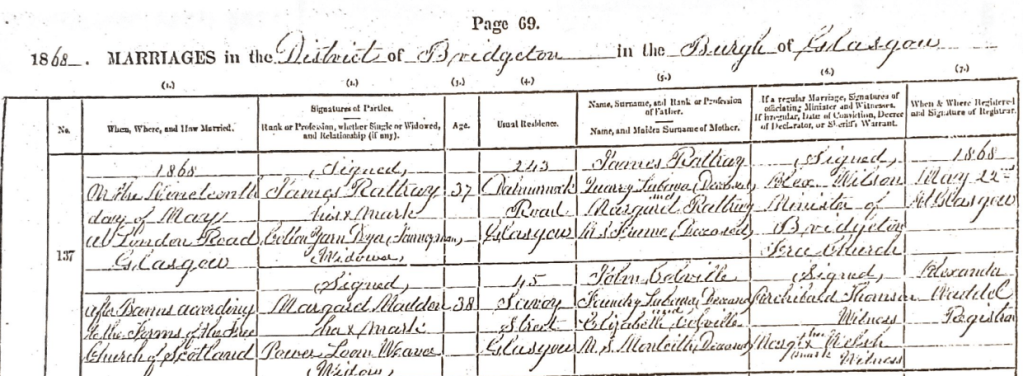 Page 69.
1868. MARRIAGES in the District of Bridgeton in the Burgh of Glasgow
(1.) (2.) (3.) (4.) (5.) (6.) (7.)
No.
When, Where, and How Married.
Signatures of Parties.
Rank or Profession, whether Single or Widowed, and Relationship (if any).
Age.
Usual Residence.
Name, Surname, and Rank or Profession of Father.
Name, and Maiden Surname of Mother.
If a regular Marriage, Signatures of officiating Minister and Witnesses.
If irregular, Date of Conviction, Decree of Declarator, or Sheriff's Warrant.
When & Where Registered and Signature of Registrar.
137
1868
On the Nineteenth
day of May
at London Road
Glasgow
after Banns according
to the Forms of the Free
Church of Scotland
(Signed)
James Rattray
his x mark
Cotton Yarn Dyer (Journeyman)
(Widower)
(Signed)
Margaret Madden
her x mark
Power Loom Weaver
(Widow)
37
38
243
Dalmarnock
Road
Glasgow
45
Savoy
Street
Glasgow
James Rattray
Quarry Labourer (Deceased)
and
Margaret Rattray
M.S. (Deceased)
John Colville
Foundry Labourer (Deceased)
and
Elizabeth Colville
M.S. Monteith (Deceased)
(Signed)
Alex. Wilson
Minister of
Bridgeton
Free Church
(Signed)
Archibald Thomson
Witness
her x mark
Witness
1868
May 22nd
At Glasgow
Alexander
Waddel
Registrar